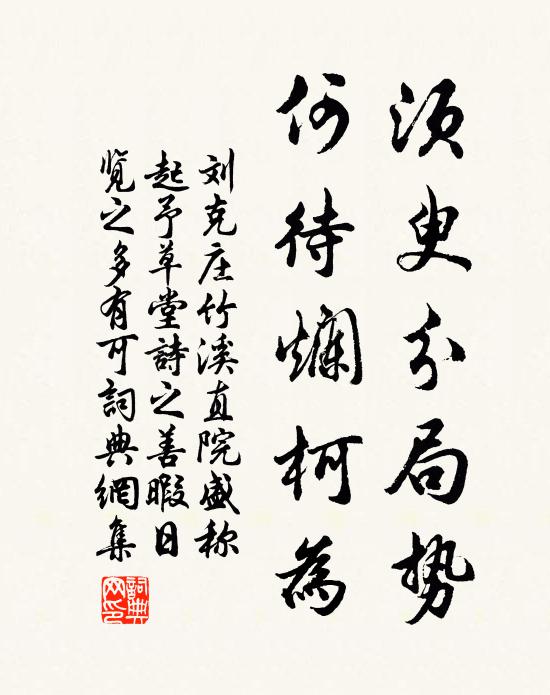 须臾分局势
何待爛柯為
刘克庄竹溪直院盛称
起予草堂詩之善暇日
览之多有可詞典網集
詞典網印